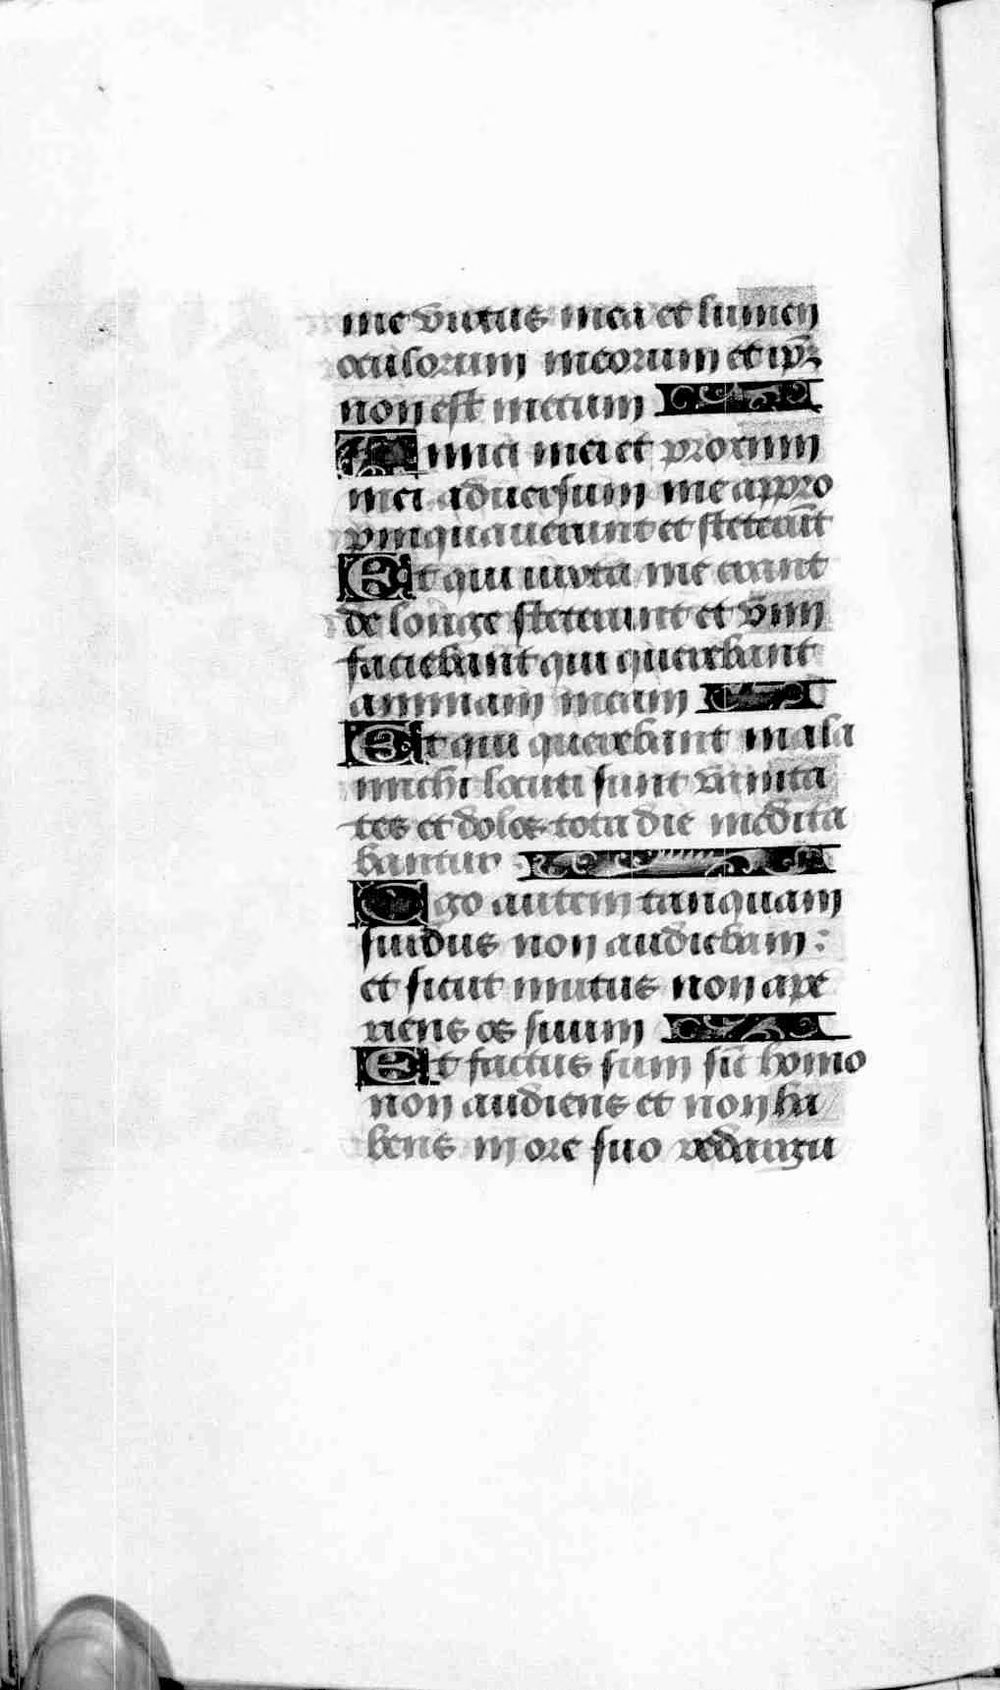 me virtus mea et lumen
oculorum meorum et ip̄ꝝ
non est mecum
Amici mei et proximi
mei aduersum me appro
pinquauerunt et steterūt
Et qui iuxta me erant
de longe steterunt et vim
faciebant qui querebant
animam meam
Et qui querebant mala
michi locuti sunt vanita
tes et dolos tota die medita
bantur
Ego autem tanquam
surdus non audiebam :
et sicut mutus non ape
riens os suum
Et factus sum sic̄ homo
non audiens et non ha
bens in ore suo redargu